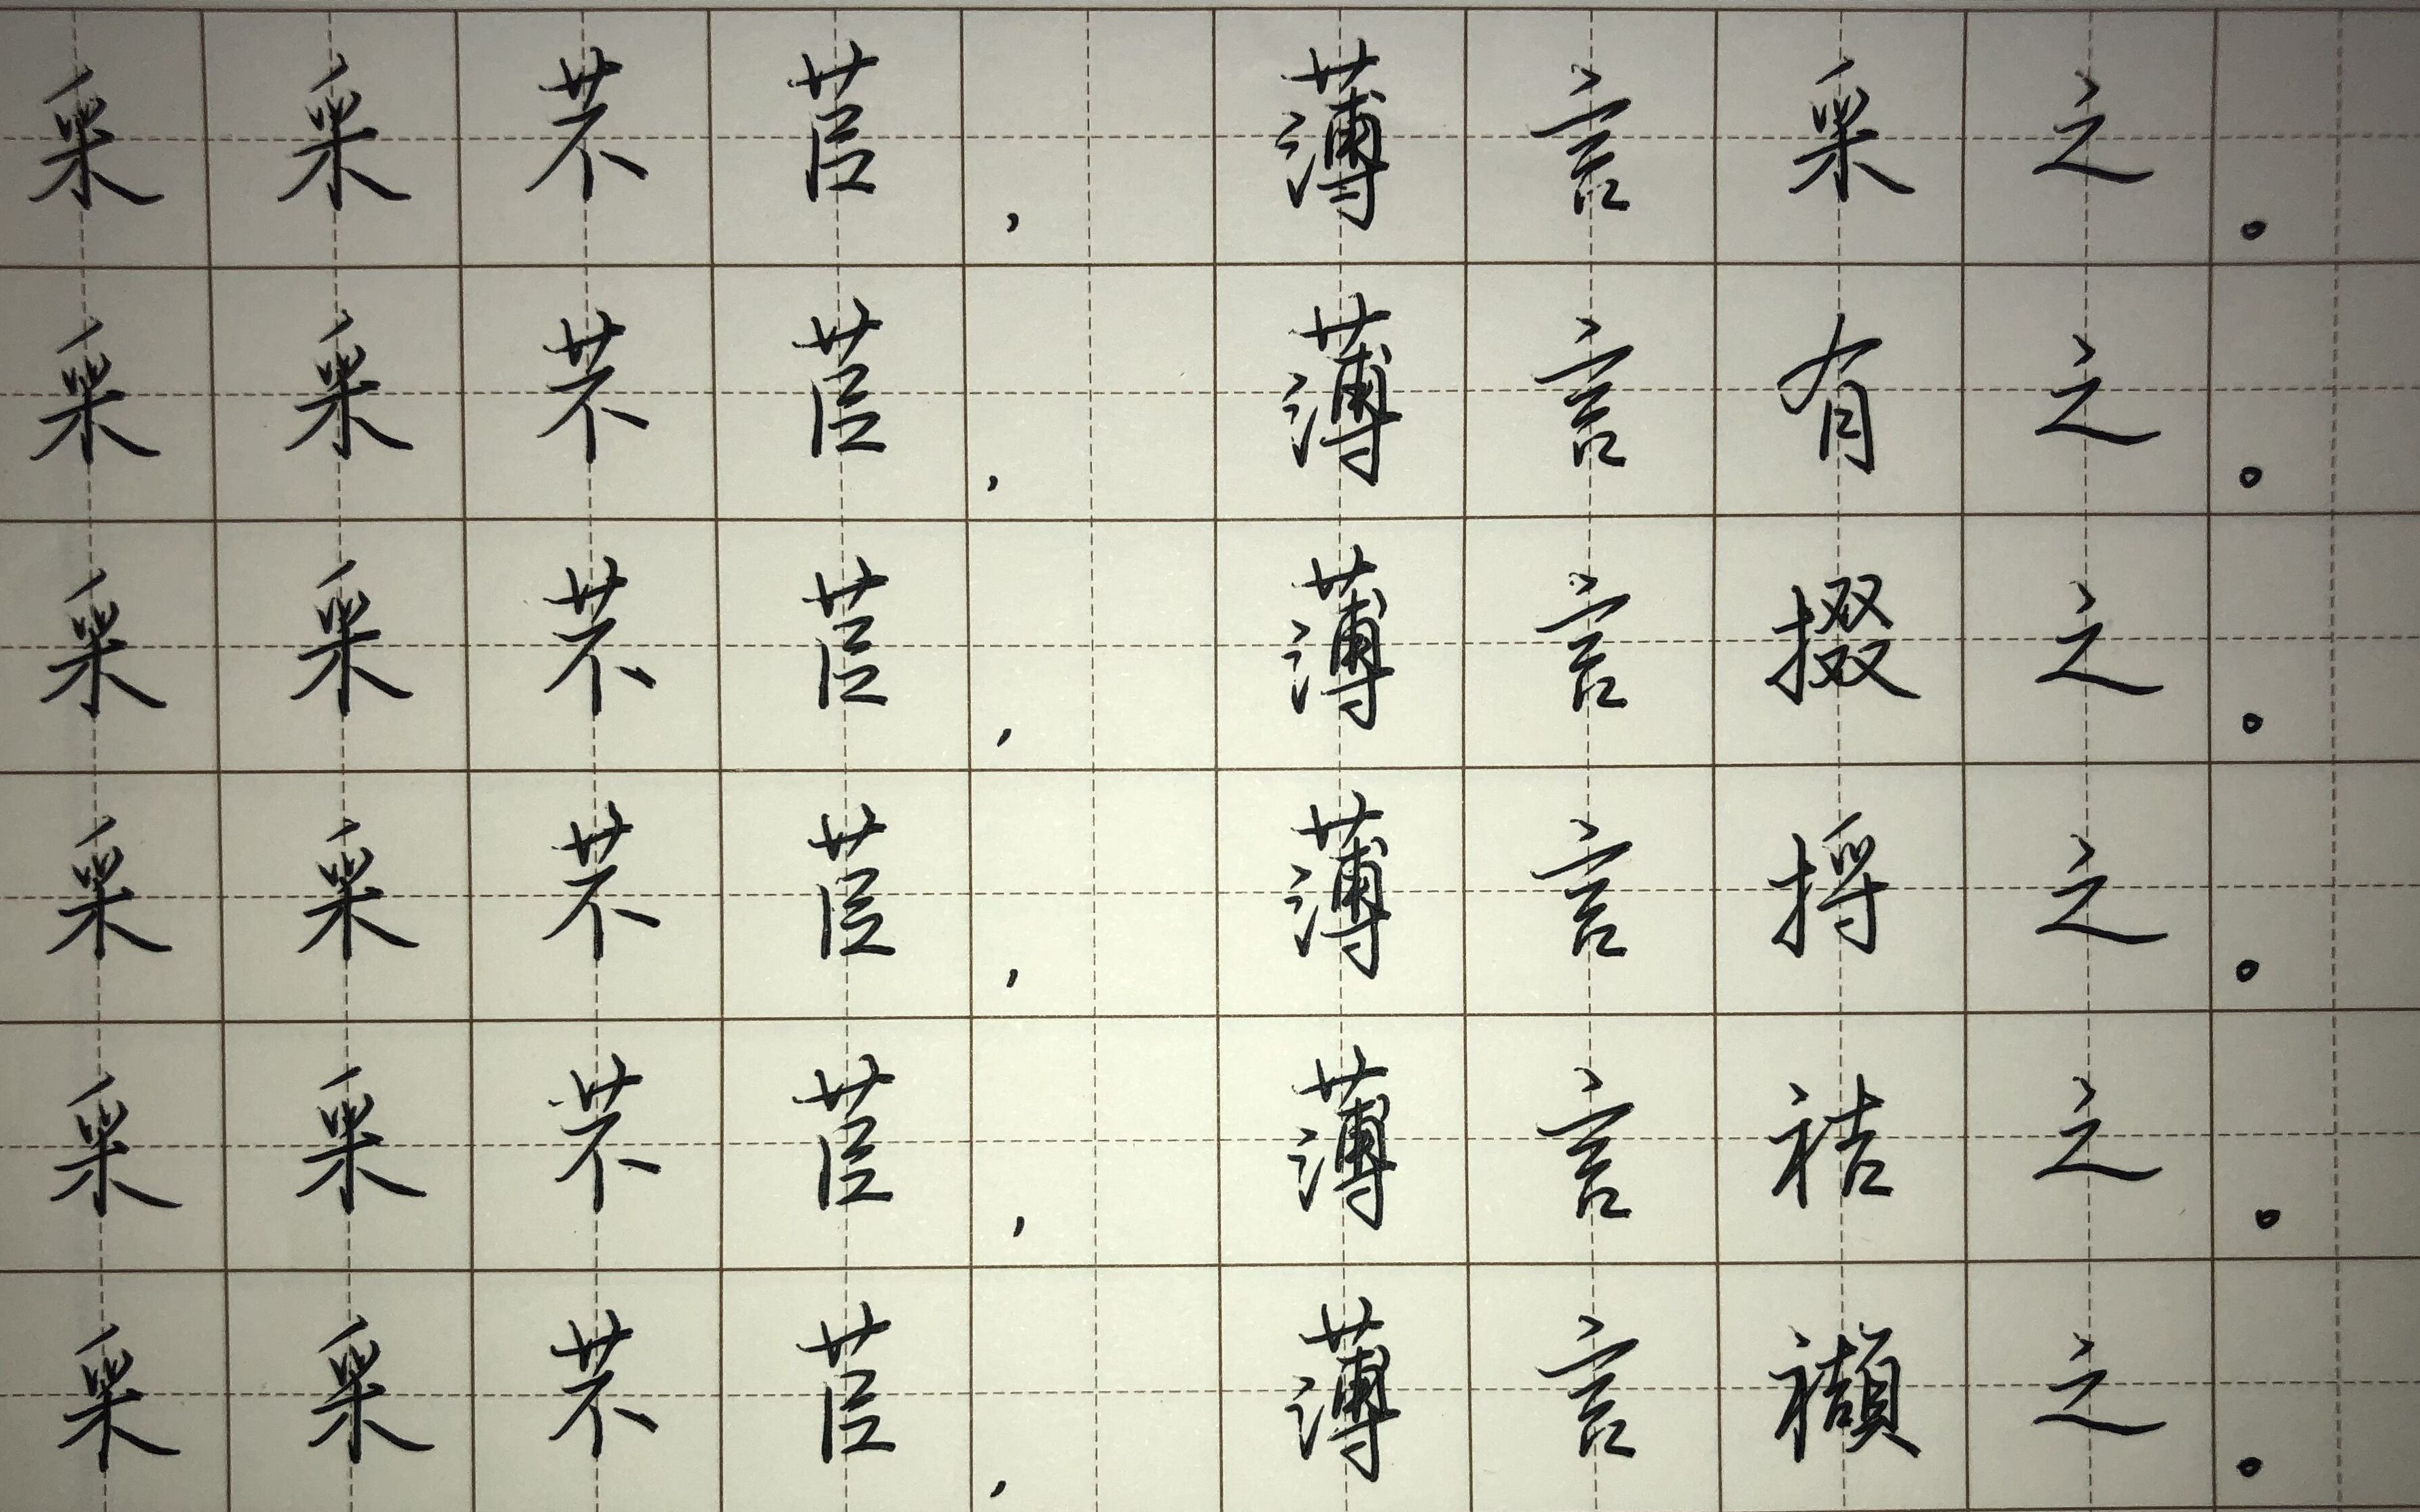 采采芣苢，薄言采之。
采采芣苢，薄言有之。
采采芣苢，薄言掇之。
采采芣苢，薄言捋之。
采采芣苢，薄言袺之。
采采芣苢，薄言襭之。